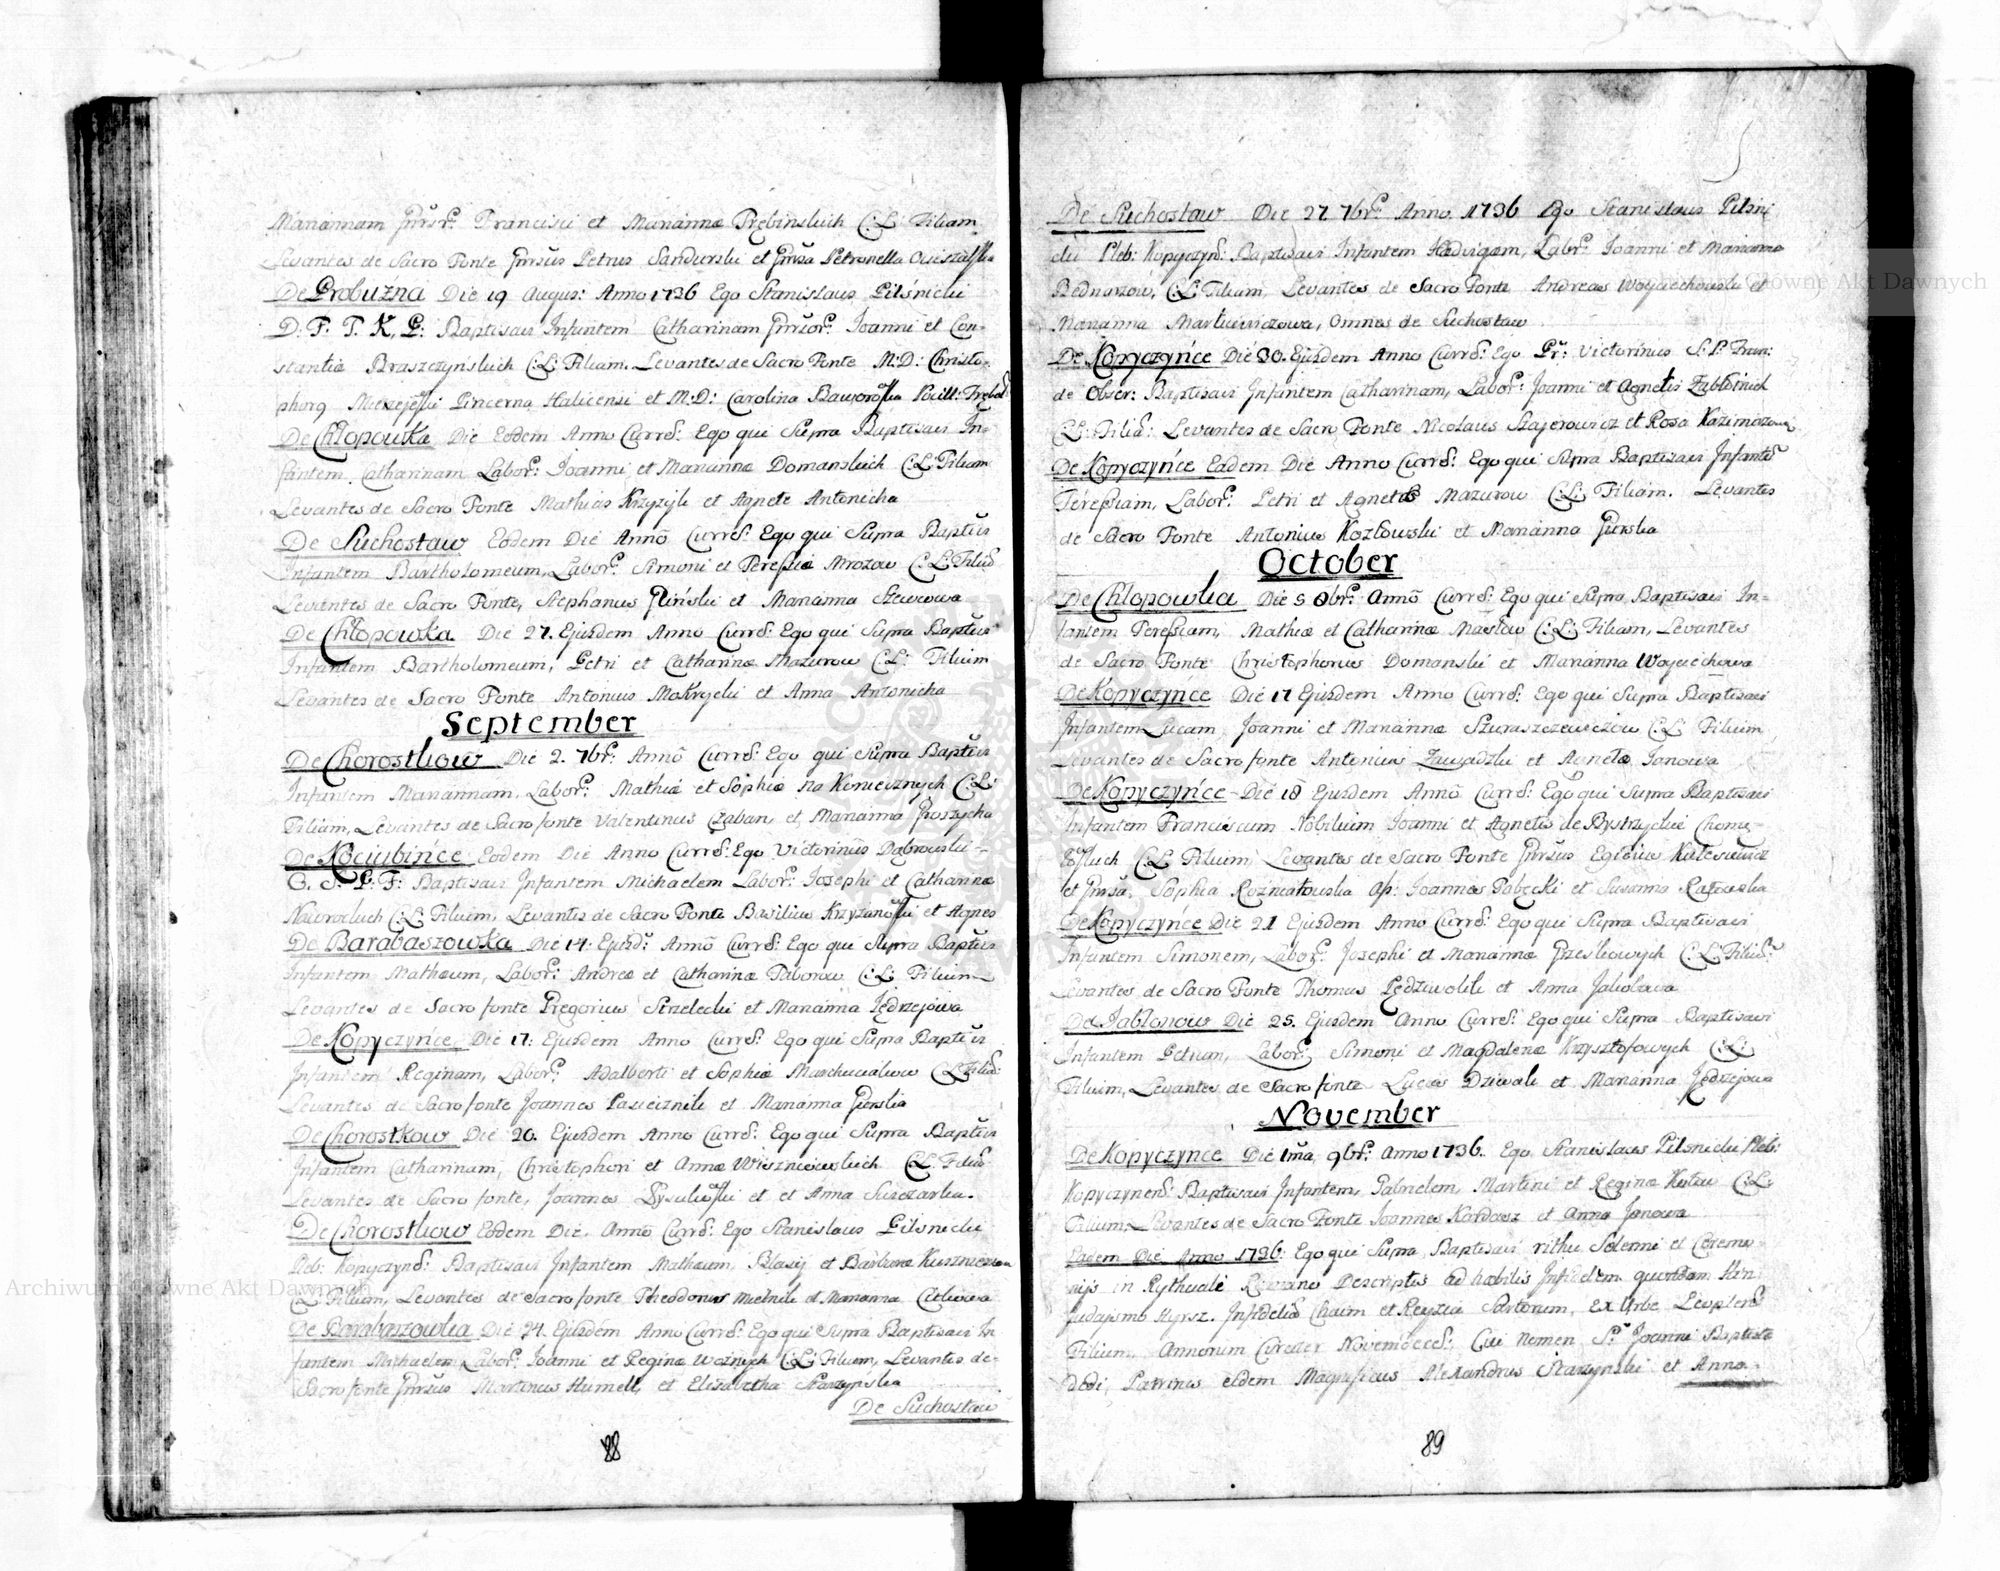 Mariannam Gnrsr. Francisci et Mariannæ Trębinskich C:L: Filiam
Levantes de Sacro Fonte Gnrsus Petrus Sandurski et Gnrsa Petronella
De Probuzna Die 19 Augus: Anno 1736 Ego Stanislaus Pilsnicki
D. F. P. K. P: Baptisavi Infantem Catharinam Gnrsor. Joanni et Con-
stantiæ Braszczynskich C:L: Filiam. Levantes de Sacro Fonte M:D: Christo-
phorg Pincerna Halicensi et M:D: Carolina
De Chłopowka Die Eodem Anno Curre: Ego qui Supra Baptisavi In-
fantem Catharinam Labor: Joanni et Mariannæ Domanskich C:L: Filiam
Levantes de Sacro Fonte Mathias Krzyzyk et Agnete Antonicha
De Suchostaw Eodem Die Anno Curre: Ego qui Supra Baptis
Infantem Bartholomeum, Labor: Simoni et Teressiæ Mrozow C:L: Filiu
Levantes de Sacro Fonte, Stephanus Gliński et Marianna Szewcowa
De Chłopowka Die 27. Ejusdem Anno Curre: Ego qui Supra Baptis
Infantem Bartholomeum, Petri et Catharinæ Mazurow C:L: Filium
Levantes de Sacro Fonte Antonius Mokrycki et Anna Antonicha
September
De Chorostkow Die 2. 7br: Anno Curre: Ego qui Supra Baptis
Infantem Mariannam. Labor: Mathiæ et Sophiæ na Koniecznych C:L:
Filiam, Levantes de Sacro fonte Valentinus Czaban, et Marianna Groszycha
De Kociubińce Eodem Die Anno Curre: Ego Victorinus Dąbrowski
O. S. P. F: Baptisavi Infantem Michaelem Labor: Josephi et Catharinæ
Nawrockich C:L: Filium, Levantes de Sacro Fonte Basilius Krzyzanoski et Agnes
De Barabaszowka Die 14. Ejusd: Anno Curre: Ego qui Supra Baptis
Infantem Mathæum, Labor: Andreæ et Catharinæ Taborow C:L: Filium
Levantes de Sacro fonte Gregorius Strzelecki et Marianna Jędrzejowa
De Kopyczyńce Die 17: Ejusdem Anno Curre: Ego qui Supra Baptis
Infantem Reginam, Labor: Adalberti et Sophiæ C:L: Filia:
Levantes de Sacro fonte Joannes Pasiecznik et Marianna Gurska
De Chorostkow Die 20. Ejusdem Anno Curre: Ego qui Supra Baptis
Infantem Catharinam, Christophori et Annæ Wiszniowskich C:L: Filia
Levantes de Sacro fonte, Joannes et et Anna
De Chorostkow Eodem Die. Anno Curre: Ego Stanislaus Pilsnicki
Pleb: Kopyczyn: Baptisavi Infantem Mathæum, Blasij et Barbaræ
C:L: Filium, Levantes de Sacro fonte Theodorus Mielnik et Marianna
De Barabaszowka Die 24. Ejusdem Anno Curre: Ego qui Supra Baptisavi In
fantem Michaelem Labor: Joanni et Reginæ Woznych C:L: Filium, Levantes de
Sacro fonte Gnrsus Martinus Humell, et Elisabetha Starzynska
De Suchostaw
88
De Suchostaw Die 27 7br: Anno 1736 Ego Stanislaus Pilsni
cki Pleb: Kopyczyn: Baptisavi Infantem Hedvigam, Labor: Joanni et Mariannæ
Bednarzow, C:L: Filiam, Levantes de Sacro Fonte Andreas Woyciechowski et
Marianna Markiewiczowa, Omnes de Suchostaw
De Kopyczyńce Die 30. Ejusdem Anno Curre: Ego Pr: Victorinus S:P: Fran:
de Obser: Baptisavi Infantem Catharinam, Labor: Joanni et Agnetis
C:L: Filia: Levantes de Sacro Fonte Nicolaus Szajerowicz et Rosa
De Kopyczyńce Eadem Die Anno Curre: Ego qui Supra Baptisavi Infante
Teressiam, Labor: Petri et Agnetæ Mazurow C:L: Filiam. Levantes
de Sacro Fonte Antonius Kozłowski et Marianna Gurska
October
De Chłopowka Die 5 8br: Anno Curre: Ego qui Supra Baptisavi In-
fantem Teressiam, Mathiæ et Catharinæ Masłow C:L: Filiam, Levantes
de Sacro Fonte Christophorus Domanski et Marianna Woyciechowa
De Kopyczyńce Die 17 Ejusdem Anno Curre: Ego qui Supra Baptisavi
Infantem Lucam, Joanni et Mariannæ C:L: Filium
Levantes de Sacro fonte Antonius Zawadzki et Agneta Janowa
De Kopyczyńce Die 18 Ejusdem Anno Curre: Ego qui Supra Baptisavi
Infantem Franciscum Nobilium Joanni et Agnetis de Bystrzyckie
C:L: Filium Levantes de Sacro Fonte Gnrsus Egidius
et Gnrsa, Sophia Rozniatowska As: Joannes et Susanna
De Kopyczyńce Die 21 Ejusdem Anno Curre: Ego qui Supra Baptisavi
Infantem Simonem, Labor: Josephi et Mariannæ C:L: Filiu:
Levantes de Sacro Fonte Thomas et Anna Jakobowa
De Jabłonow Die 25. Ejusdem Anno Curre: Ego qui Supra Baptisavi
Infantem Petrum, Labor: Simoni et Magdalenæ Krzysztofowych C:L:
Filium, Levantes de Sacro fonte Lucas Dziwak et Marianna Jędrzejowa
November
De Kopyczynce Die 1ma 9br: Anno 1736. Ego Stanislaus Pilsnicki Pleb:
Kopyczynen: Baptisavi Infantem, Gabrielem, Martini et Reginæ C:L:
Filium Levantes de Sacro Fonte Joannes Kordasz et Anna Janowa
Eadem Die Anno 1736: Ego qui Supra Baptisavi rithu Solenni et Ceremo-
nijs in Rythuale Romano Descriptis ad habitis Infidelem quendam
Judaismo Hersz. Infidelis Chaim et Sartorum, Ex Urbe
Filium. Annorum Circiter Novemdece: Cui Nomen S: Joanni Baptista
dedi, Patrinus eidem Magnificus Alexandrus Starzynski et Anna
89
Archiwum Główne Akt Dawnych
Archiwum Główne Akt Dawnych